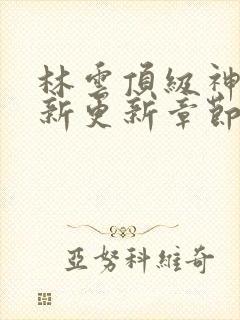 林雲頂級神
新更新章節
亞努科維奇